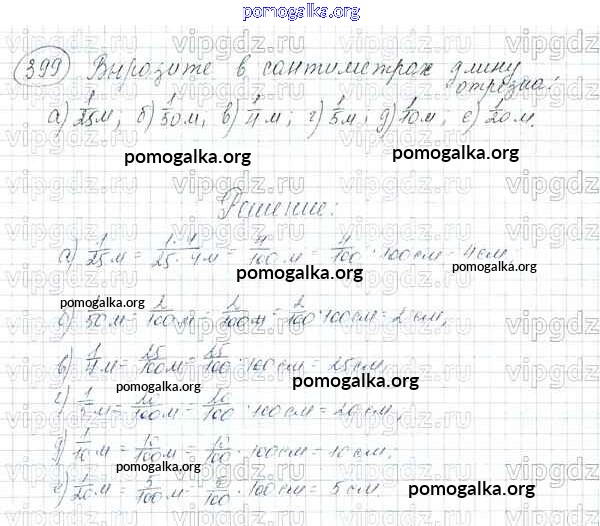 pomogalka.org
399 Выразите в сантиметрах длину
отрезка:
а) 1/25 м; б) 1/50 м; в) 1/4 м; г) 1/5 м; д) 1/10 м; е) 1/20 м.
pomogalka.org pomogalka.org
Решение:
а) 1/25 м = 1·4/25·4 м = 4/100 м = 4/100 · 100 см = 4 см,
pomogalka.org pomogalka.org
б) 1/50 м = 2/100 м = 2/100 м = 2/100 · 100 см = 2 см,
в) 1/4 м = 25/100 м = 25/100 · 100 см = 25 см,
pomogalka.org pomogalka.org
г) 1/5 м = 20/100 м = 20/100 · 100 см = 20 см,
д) 1/10 м = 10/100 м = 10/100 · 100 см = 10 см;
pomogalka.org
е) 1/20 м = 5/100 м = 5/100 · 100 см = 5 см
pomogalka.org